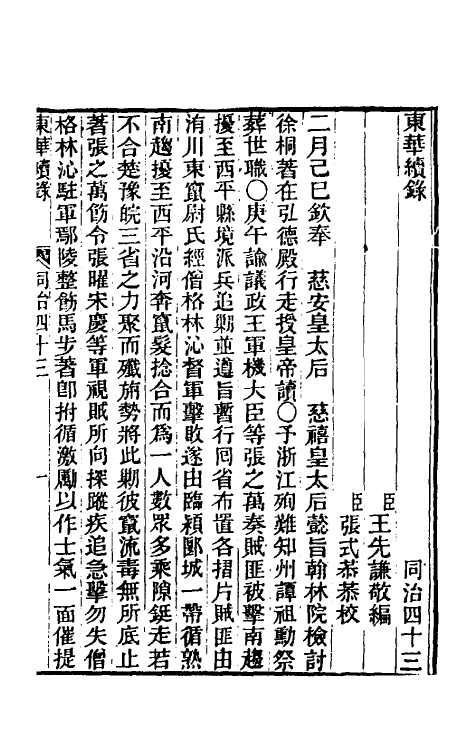 東華續錄　同治四十三
臣　王先謙敬編
臣　張式恭恭校
二月己巳欽奉　慈安皇太后　慈禧皇太后懿旨翰林院檢討
徐桐著在弘德殿行走授皇帝讀○予浙江殉難知州譚祖勳祭
葬世職○庚午諭議政王軍機大臣等張之萬奏賊匪被擊南趨
擾至西平縣境派兵追勦並遵旨暫行囘省布置各招片賊匪由
洧川東竄尉氏經僧格林沁督軍擊敗遂由臨潁郾城一帶循熟
南趨擾至西平沿河奔竄髮捻合而爲一人數眾多乘隙鋌走若
不合楚豫皖三省之力聚而殲旃勢將此勦彼竄流毒無所底止
著張之萬飭令張曜宋慶等軍視賊所向探蹤疾追急擊勿失僧
格林沁駐軍鄢陵整飭馬步著卽拊循激勵以作士氣一面催提
東華續錄　同治四十三　一